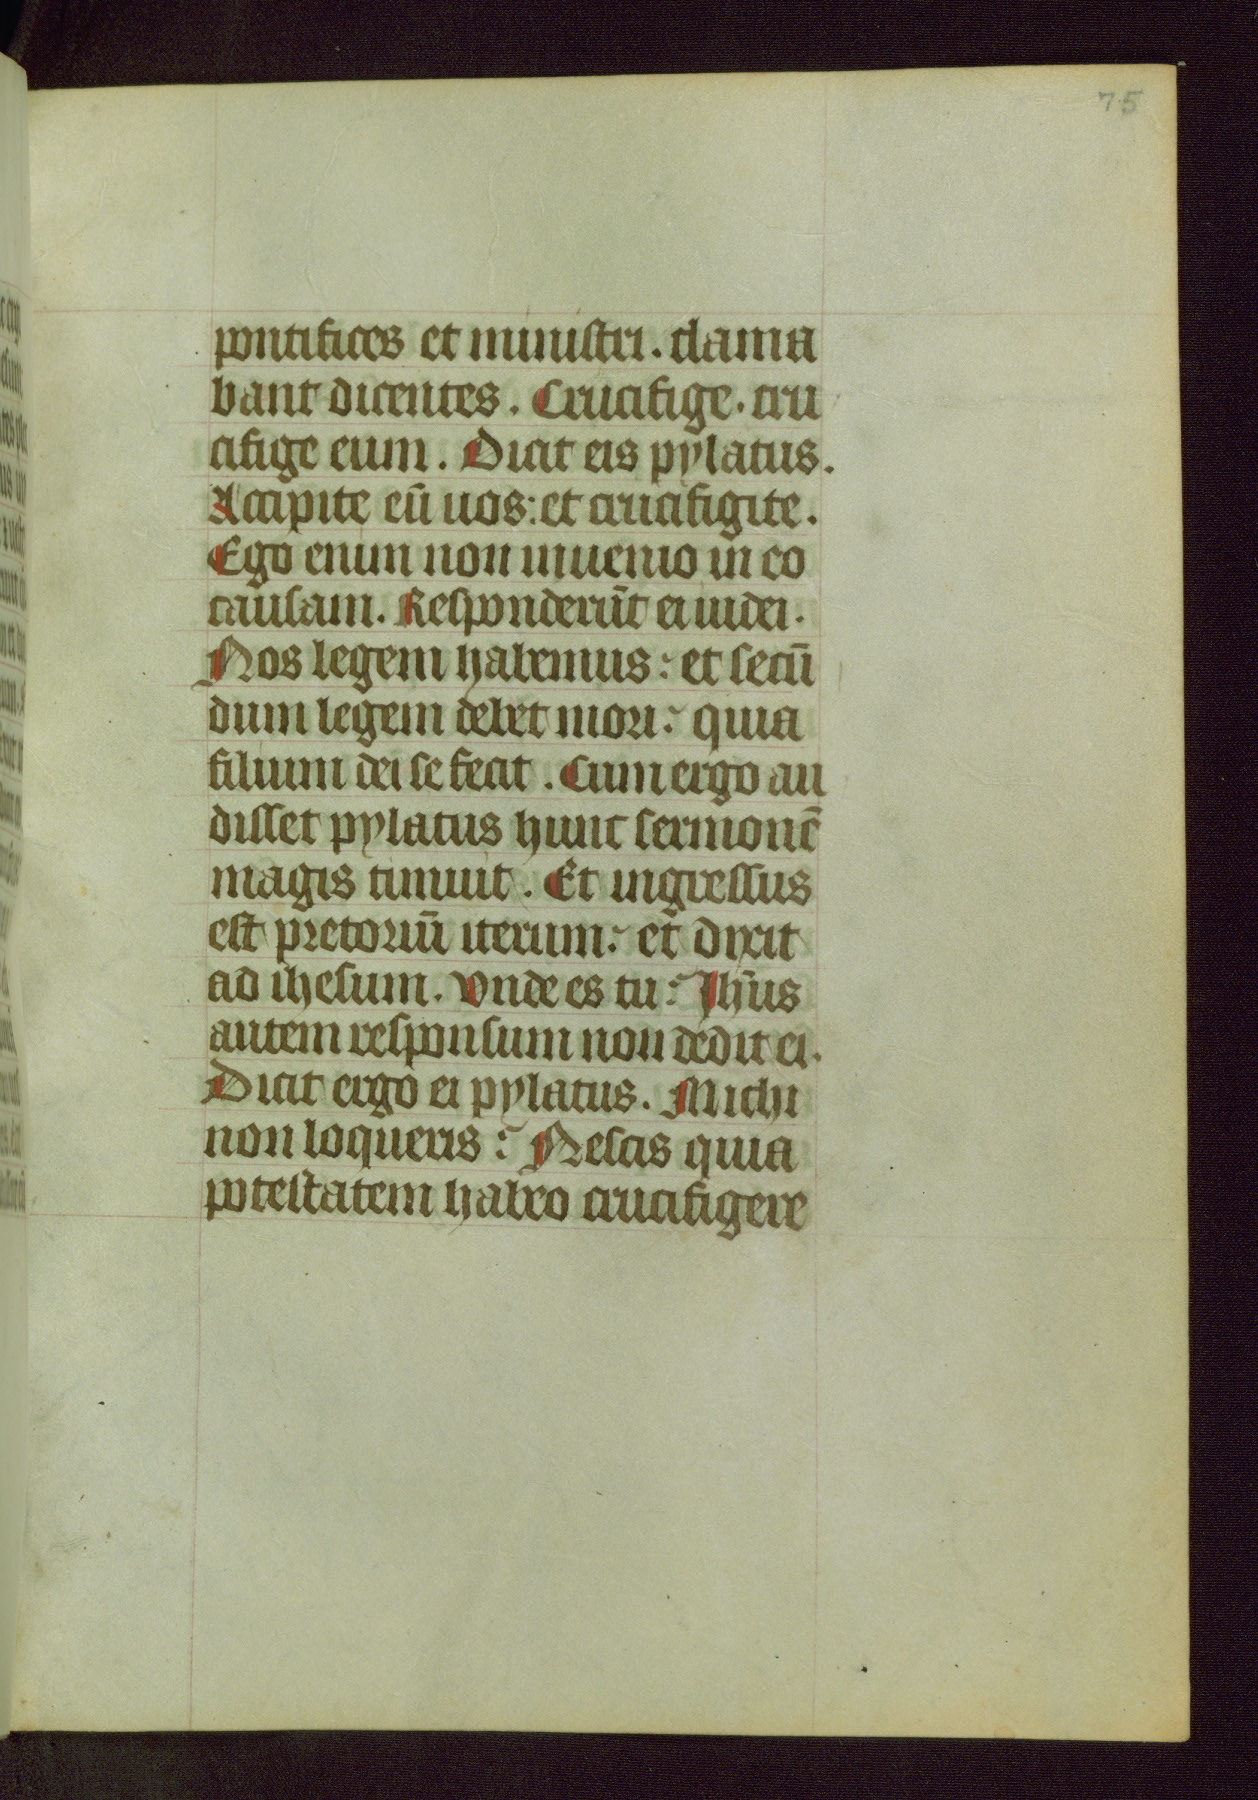 75
pontifices et ministri. clama
bant dicentes. Crucifige. cru
cifige eum. Dicit eis pylatus.
Accipite eū uos: et crucifigite.
Ego enim non inuenio in eo
causam. Responderūt ei iudei.
Nos legem habemus: et secū
dum legem debet mori: quia
filium dei se fecit. Cum ergo au
disset pylatus hunc sermonē
magis timuit. Et ingressus
est pretoriū iterum: et dixit
ad ihesum. Vnde es tu: Ihūs
autem responsum non dedit ei.
Dicit ergo ei pylatus. Michi
non loqueris: Nescis quia
potestatem habeo crucifigere